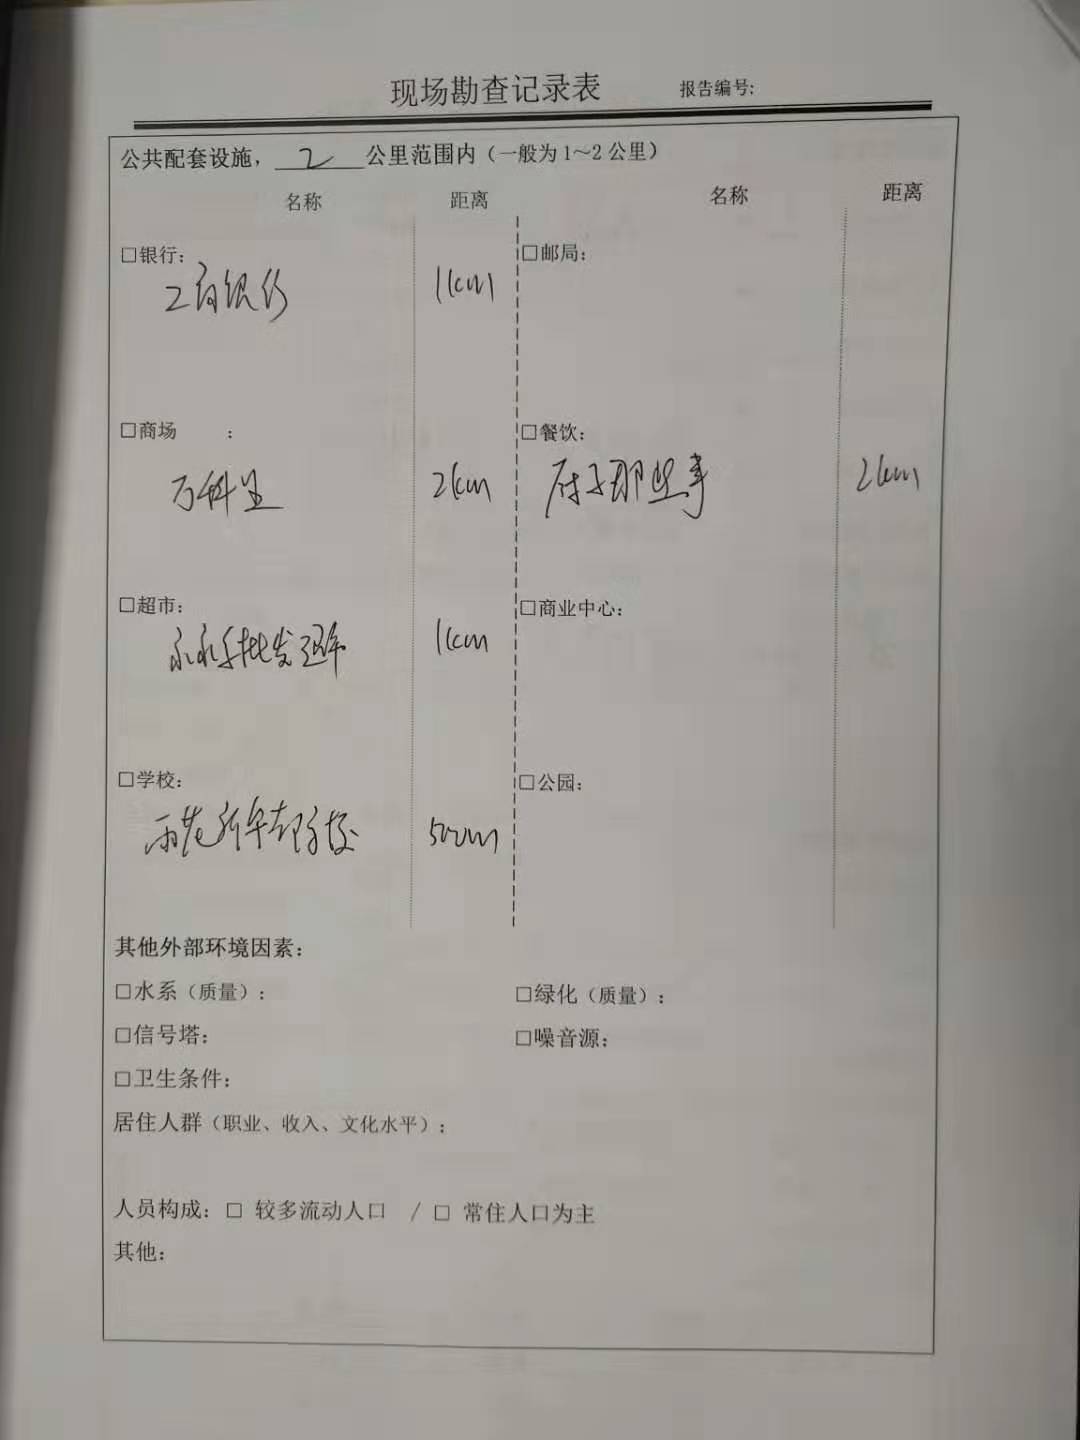 现场勘查记录表 报告编号:
公共配套设施， 2 公里范围内（一般为1～2公里）
名称 距离 名称 距离
□银行： □邮局：
工商银行 1km
□商场 ： □餐饮：
万科里 2km 厨子那些事 2km
□超市： □商业中心：
永永手批发超市 1km
□学校： □公园：
雨花 学校 500m
其他外部环境因素：
□水系（质量）： □绿化（质量）：
□信号塔： □噪音源：
□卫生条件：
居住人群（职业、收入、文化水平）：
人员构成：□ 较多流动人口 / □ 常住人口为主
其他：